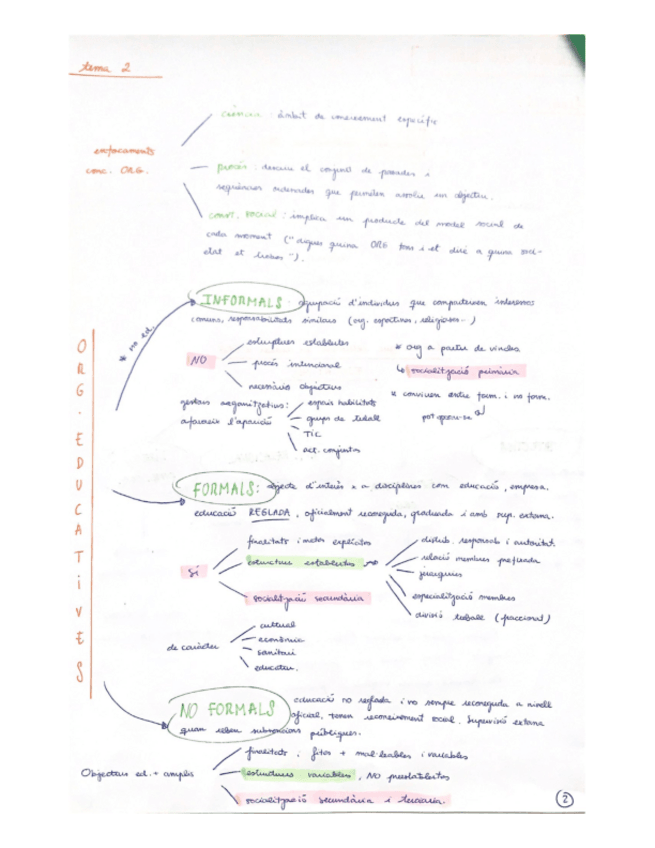 tema 2
enfocaments
conc. ORG.
ciència : àmbit de coneixement específic
procés : descriu el conjunt de passades i
seqüències ordenades que permeten assolir un objectiu.
const. social : implica un producte del model social de
cada moment ("digues quina ORG tens i et diré a quina soci-
etat et trobes").
ORG. EDUCATIVES
* no ed.
INFORMALS : agrupació d'individus que comparteixen interessos
comuns, responsabilitats similars (org. esportives, religioses..)
NO
estructures establertes
procés intencional
necessàries objectius
* org a partir de vincles
↳ socialització primària
* conviuen entre form. i no form.
pot oposar-se
gestors organitzatius:
afavoreix l'aparició
espais habilitats
grups de treball
TIC
act. conjuntes
FORMALS: objecte d'interès x a disciplines com educació, empresa.
educació REGLADA, oficialment reconeguda, graduada i amb sup. externa.
SÍ
finalitats i metes explícites
estructures establertes
socialització secundària
distrib. responsab i autoritat.
relació membres prefixada
jerarquies
especialització membres
divisió treball (fraccional)
de caràcter
cultural
econòmic
sanitari
educatiu.
NO FORMALS
educació no reglada i no sempre reconeguda a nivell
oficial, tenen reconeixement social. Supervisió externa
quan reben subvencions públiques.
Objectius ed. + amplis
finalitats i fites + mal·leables i variables
estructures variables, NO preestablertes
socialització secundària i terciària.
2